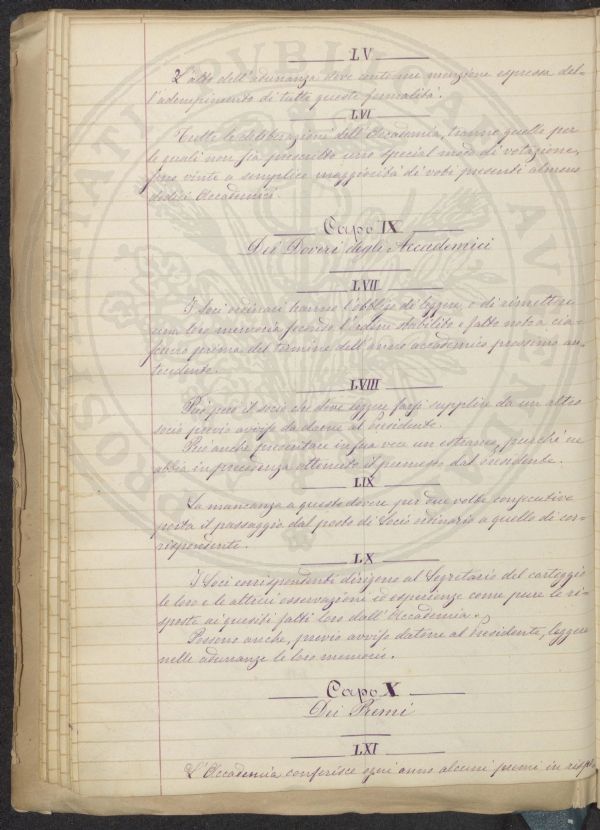 LV
L'atto dell'adunanza deve contenere menzione espressa del=
l'adempimento di tutte queste formalità.
LVI
Tutte le deliberazioni dell'Accademia, tranne quelle per
le quali non sia prescritto uno special modo di votazione,
sono vinte a semplice maggiorità di voti presenti almeno
dodici Accademici.
Capo IX
Dei Doveri degli Accademici
LVII
I Soci ordinari hanno l'obbligo di leggere, o di rimettere
una loro memoria secondo l'ordine stabilito e fatto noto a cia=
scuno prima del termine dell'anno accademico prossimo an=
tecedente.
LVIII
Può però il socio che deve leggere farsi supplire da un altro
socio previo avviso da darne al Presidente.
Può anche presentare in sua vece un estraneo, purché ne
abbia in precedenza ottenuto il permesso dal Presidente.
LIX
La mancanza a questo dovere per due volte consecutive
porta il passaggio dal posto di Socio ordinario a quello di cor=
rispondente.
LX
I Soci corrispondenti dirigono al Segretario del carteggio
le loro e le altrui osservazioni ed esperienze come pure le ri=
sposte ai quesiti fatti loro dall'Accademia.
Possono anche, previo avviso datone al Presidente, leggere
nelle adunanze le loro memorie.
Capo X
Dei Premi
LXI
L'Accademia conferisce ogni anno alcuni premi in
PROSPERITATI PUBLICAE AUGENDAE